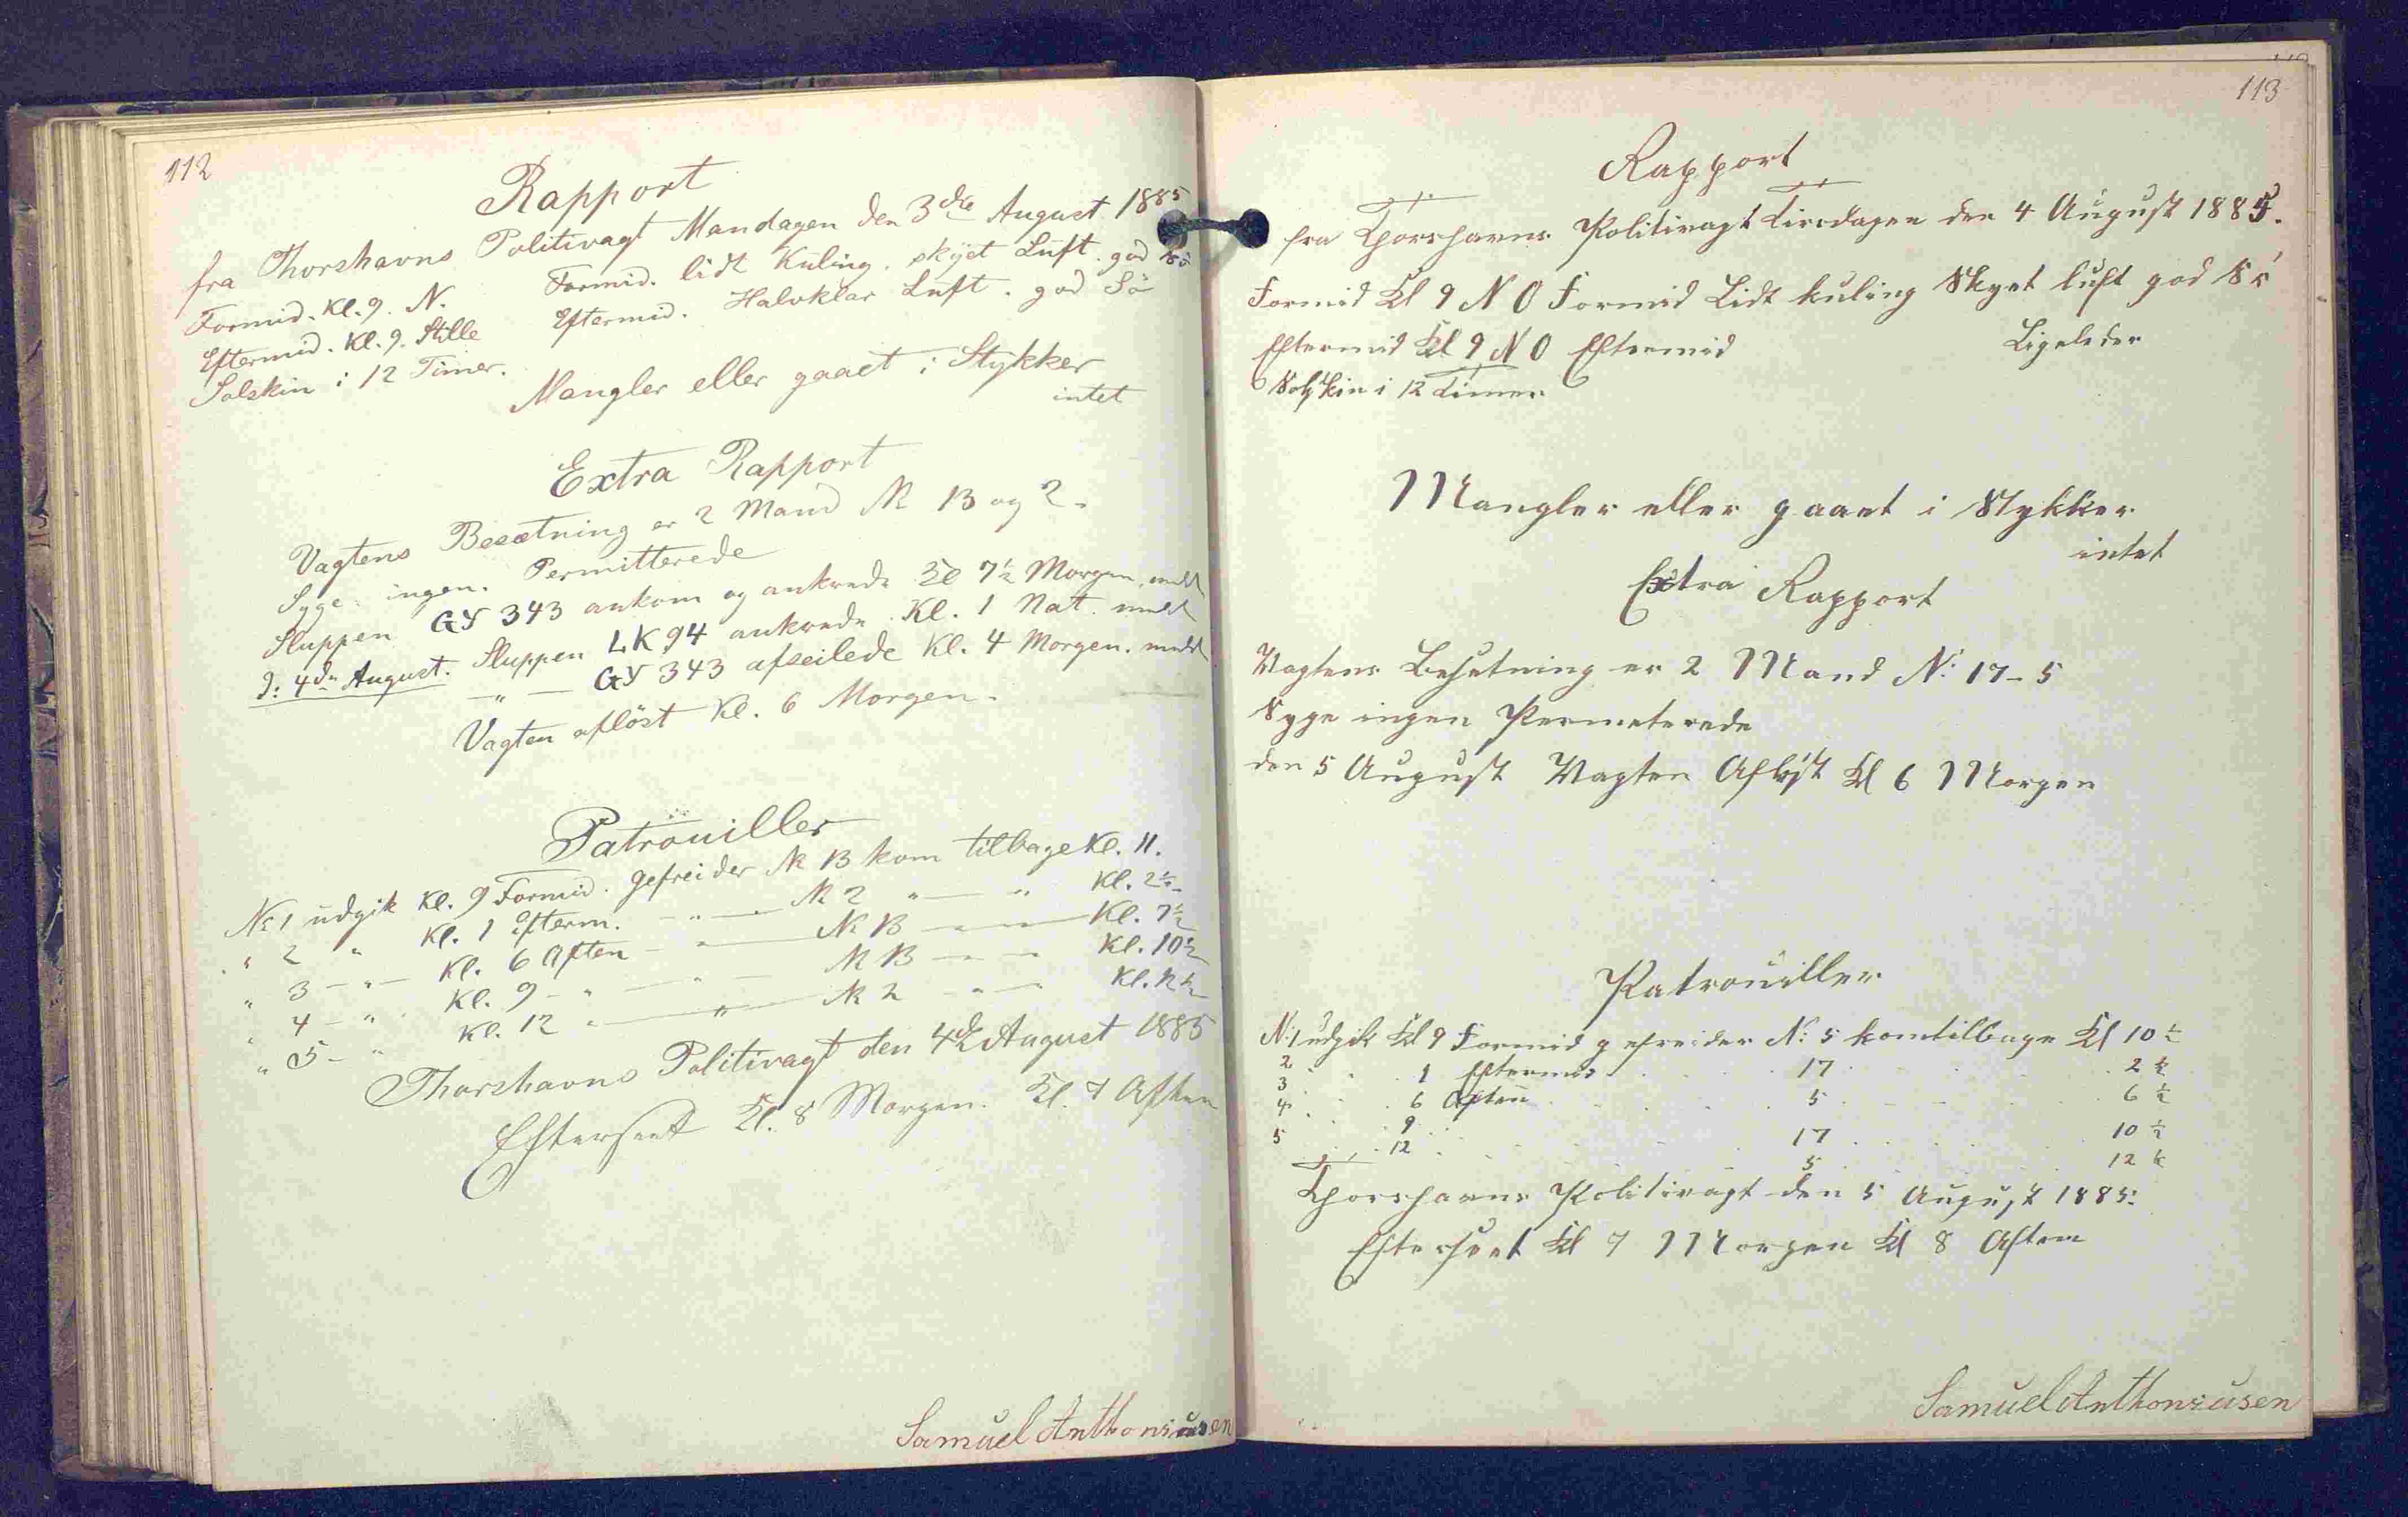 112
Rapport
fra Thorshavns Politivagt Mandagen den 3die August 1885
Formid. Kl. 9. N. Formid. lidt Kuling. skyet Luft. god Sö
Eftermid. Kl. 9. Stille Eftermid. Halvklar Luft. god Sö
Solskin i 12 Timer.
Mangler eller gaaet i Stykker
intet
Extra Rapport
Vagtens Besætning er 2 Mand № 13 og 2.
Syge ingen. Permitterede
Sluppen GY 343 ankom og ankrede Kl 7½ Morgen. meldt
D: 4de August. Sluppen LK 94 ankrede Kl. 1 Nat. meldt
— " — GY 343 afseilede Kl. 4 Morgen. meldt
Vagten aflöst Kl. 6 Morgen.
Patrouiller
№ 1 udgik Kl. 9 Formid. gefreider № 13 kom tilbage Kl. 11.
" 2 " Kl. 1 Efterm. — " — № 2 " — " Kl. 2½
" 3 — " — Kl. 6 Aften — " — № 13 — " — Kl. 7½
" 4 — " Kl. 9 — " — " — № 13 — " — Kl. 10½
" 5 — " Kl. 12 " — " — № 2 — " — Kl. 12½
Thorshavns Politivagt den 4de August 1885
Efterseet Kl. 8 Morgen. Kl. 7 Aften
Samuel Anthoniusen
113
Rapport
fra Thorshavns Politivagt Tirsdagen den 4 August 1885.
Formid Kl 9 N O Formid Lidt kuling Skyet luft god Sö
Eftermid Kl 9 N O Eftermid Ligeleder
Solskin i 12 Timer
Mangler eller gaaet i Stykker
intet
Extra Rapport
Vagtens Besetning er 2 Mand N: 17 - 5
Syge ingen Permeterede
den 5 August Vagten Afløst Kl 6 Morgen
Patrouiller
N: 1 udgik Kl 9 Formid gefreider N: 5 komtilbage Kl 10½
2 . . . 1 Eftermid . . . 17 . . . 2½
3 . . . 6 Aften . . . 5 . . . 6½
4 . . . 9 . . . 17 . . . 10½
5 . . . 12 . . . 5 . . . 12½
Thorshavns Politivagt den 5 August 1885.
Efterseet Kl 7 Morgen Kl 8 Aften
Samuel Anthoniusen